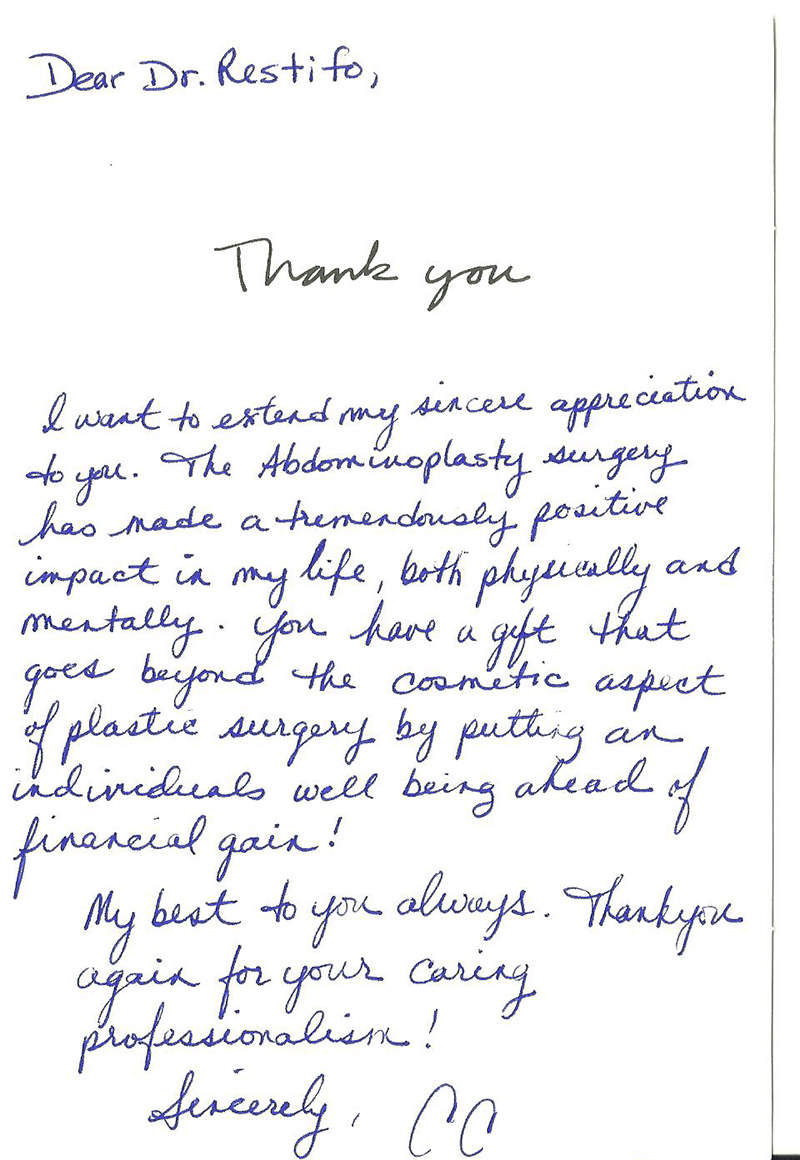 Dear Dr. Restifo,
Thank you
I want to extend my sincere appreciation
to you. The Abdominoplasty surgery
has made a tremendously positive
impact in my life, both physically and
mentally. You have a gift that
goes beyond the cosmetic aspect
of plastic surgery by putting an
individuals well being ahead of
financial gain!
My best to you always. Thank you
again for your caring
professionalism!
Sincerely, CC